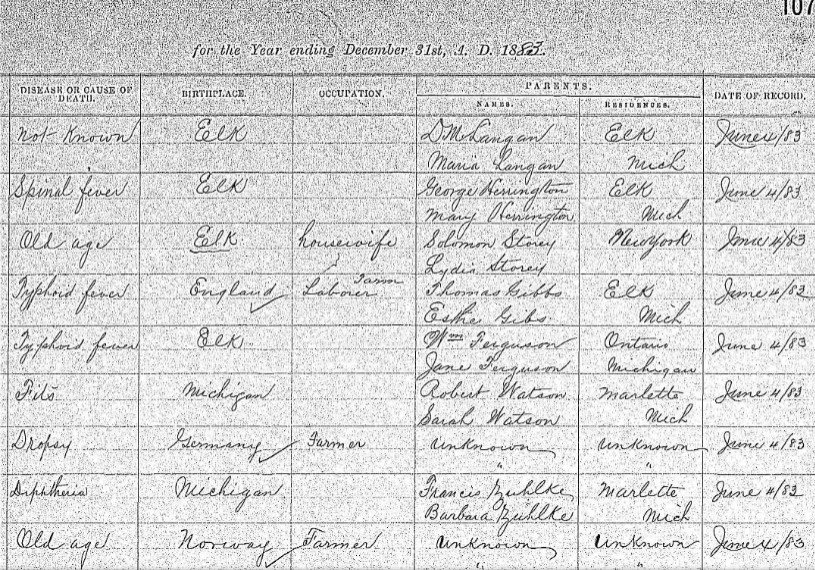 107
for the Year ending December 31st, A. D. 1883.
DISEASE OR CAUSE OF DEATH. BIRTHPLACE. OCCUPATION. PARENTS. NAMES. RESIDENCES. DATE OF RECORD.
Not Known Elk D McLangan Elk June 4/83
Maria Langan Mich
Spinal fever Elk George Herrington Elk June 4/83
Mary Herrington Mich
Old age Elk housewife Solomon Storey New York June 4/83
Lydia Storey
Typhoid fever England Farm Laborer Thomas Gibbs Elk June 4/83
Esther Gibs Mich
Typhoid fever Elk Wm Ferguson Ontario June 4/83
Jane Ferguson Michigan
Fits Michigan Robert Watson Marlette June 4/83
Sarah Watson Mich
Dropsy Germany Farmer Unknown Unknown June 4/83
" "
Diphtheria Michigan Francis Zuhlke Marlette June 4/83
Barbara Zuhlke Mich
Old age Norway Farmer Unknown Unknown June 4/83
" "